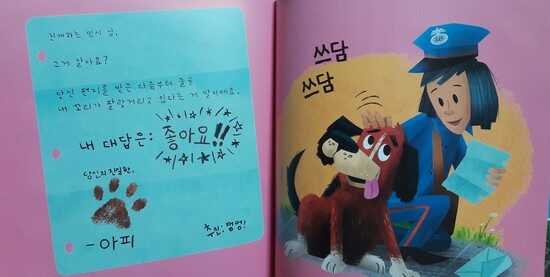 친애하는 밋지 님,
그거 알아요?
당신 편지를 받은 다음부터 줄곧
내 꼬리가 팔랑거리고 있다는 거 말이에요.
내 대답은: 좋아요!!
당신의 진실한,
-아피
추신: 멍멍!
쓰담
쓰담